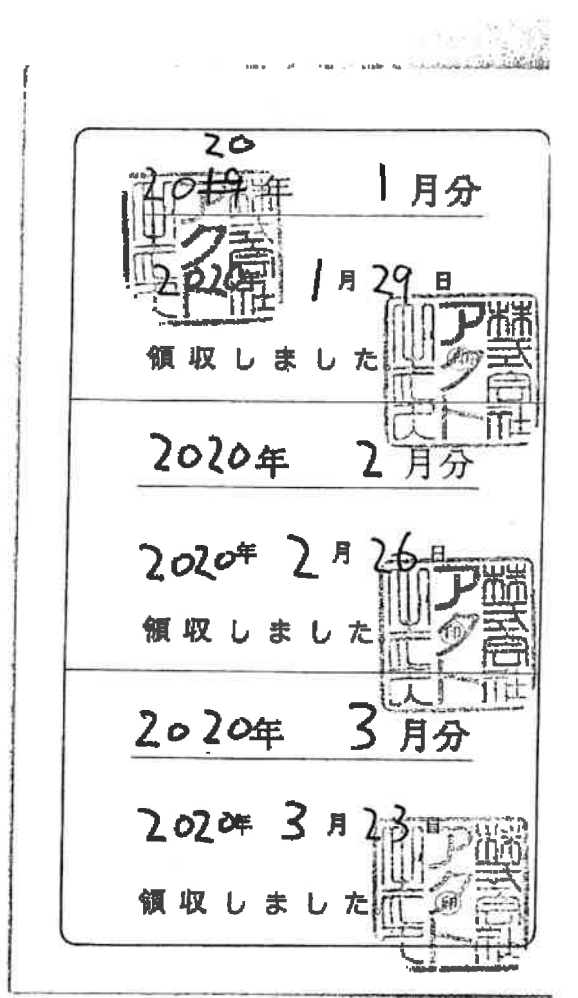 20
2019年 1月分
2020年 1月29日
領収しました
株式会社
アクト
2020年 2月分
2020年 2月26日
領収しました
株式会社
アクト
印
2020年 3月分
2020年 3月23日
領収しました
株式会社
アクト
印